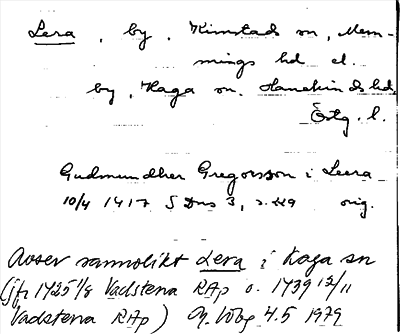 Lera, by, Kimstads sn, Mem-
mings hd el.
by, Kaga sn. Hanekinds hd.
Östg. l.
Gudmundher Gregorsson i Leera
10/4 1417 S Dns 3, s. 229 orig.
Avser sannolikt Lera i Kaga sn
(jfr 1425 1/8 Vadstena RAp o. 1439 12/11
Vadstena RAp) 4.5 1979